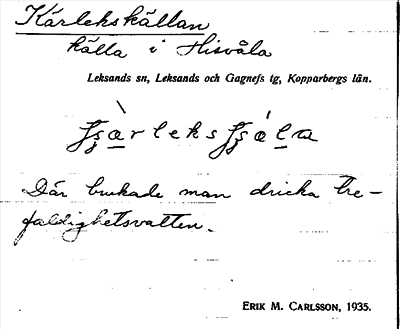 Kärlekskällan
källa i Hisvåla
Leksands sn, Leksands och Gagnefs tg, Kopparbergs län.
Där brukade man dricka tre-
faldighetsvatten.
ERIK M. CARLSSON, 1935.